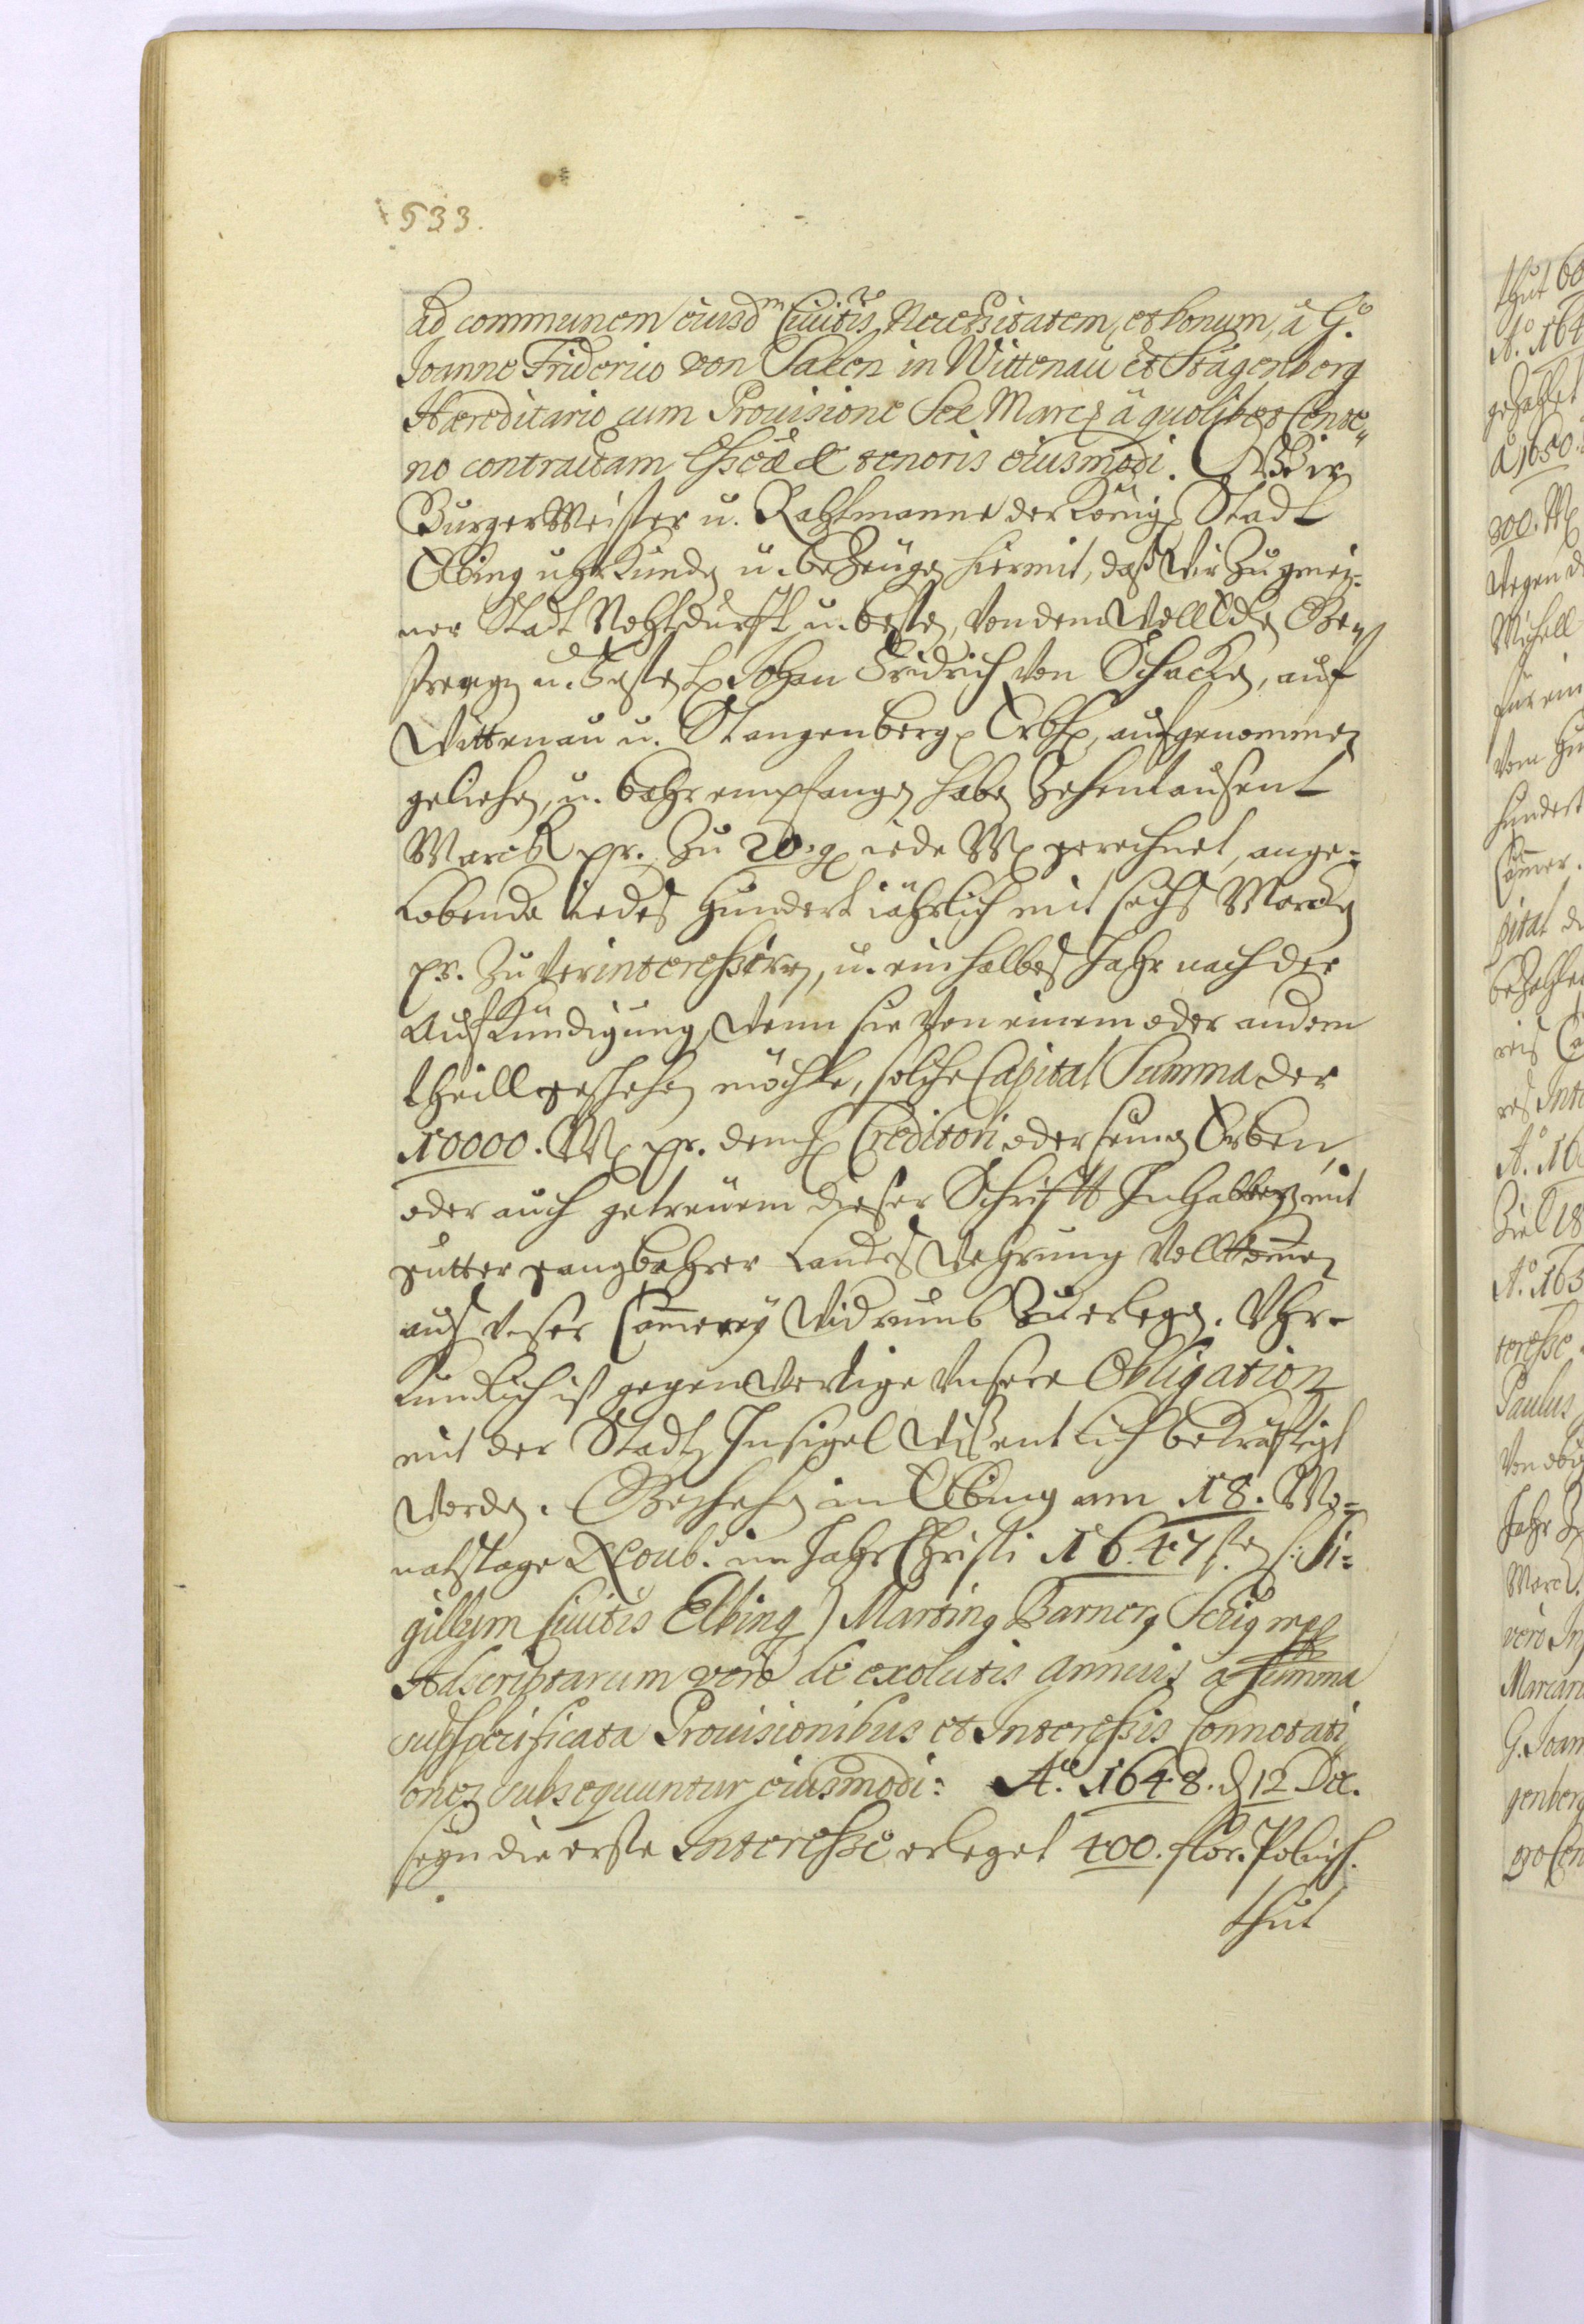 533.
ad communem eiusdm Civitis Necessitatem, et bonum, à Go.
Joanne Friderico von Saken in Wittenau et Stägenberg
Hæreditario cum Provisione Sex Marcz à quolibet Cente„
no contractam tenoris eiusmodi. Wir
BurgerMeister u. Rahtmanne der König Stadt
Elbing uhrkunden u. bezeugen hiermit, daß wir zu gemei=
ner Stadt Nohtdurfft u. besten, von dem WollEdlen Ge„
strengen u. Vesten H. Johan Fridrich von Schacken, auf
Wittenau u. Stangenberg Erbh., aufgenommen
geliehen, u. bahr empfangen haben Zehentausent
Marck pr. zu 20. g. iede M. gerechnet, ange=
lobende iedes Hundert iährlich mit sechs Marcken
pr. zu verinteressiren, u. ein halbes Jahr nach der
Aufkündigung, wenn sie von einem oder andern
theill geschehen möchte, solche Capital Summa der
10000. M. pr. dem H. Creditori oder seinen Erben,
oder auch getreuem dieser Schrifft Inhabber mit
gutter gangbahrer Landes Wehrung vollkommen
auß unser Cammerey widrumb zu erlegen. Uhr=
kundlich ist gegenwertige unsere Obligation
mit der Stadt Insigel wissentlich bekräftigt
worden. Geschehen in Elbing am 18. Mo=
natstage Xbris im Jahr Christi 1647sten (: Si=
gillum Civitis Elbing) Marting Barnerg Secrig mpp
Adscriptarum verò de exolutis annuis à summa
subspecificata Provisionibus et Interessis Connotati
ones subsequuntur eiusmodi: Ao. 1648. d 12 Dec.
seyn die erste Interesse erleget 400. flor. Polnisch.
thut